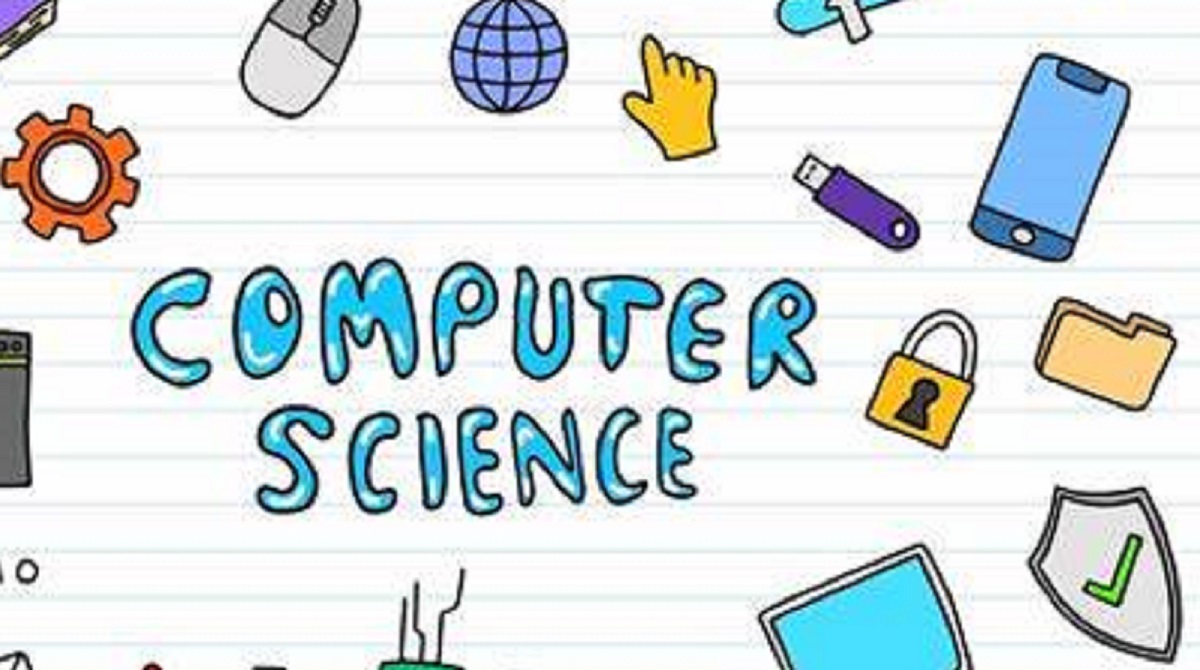 COMPUTER
SCIENCE